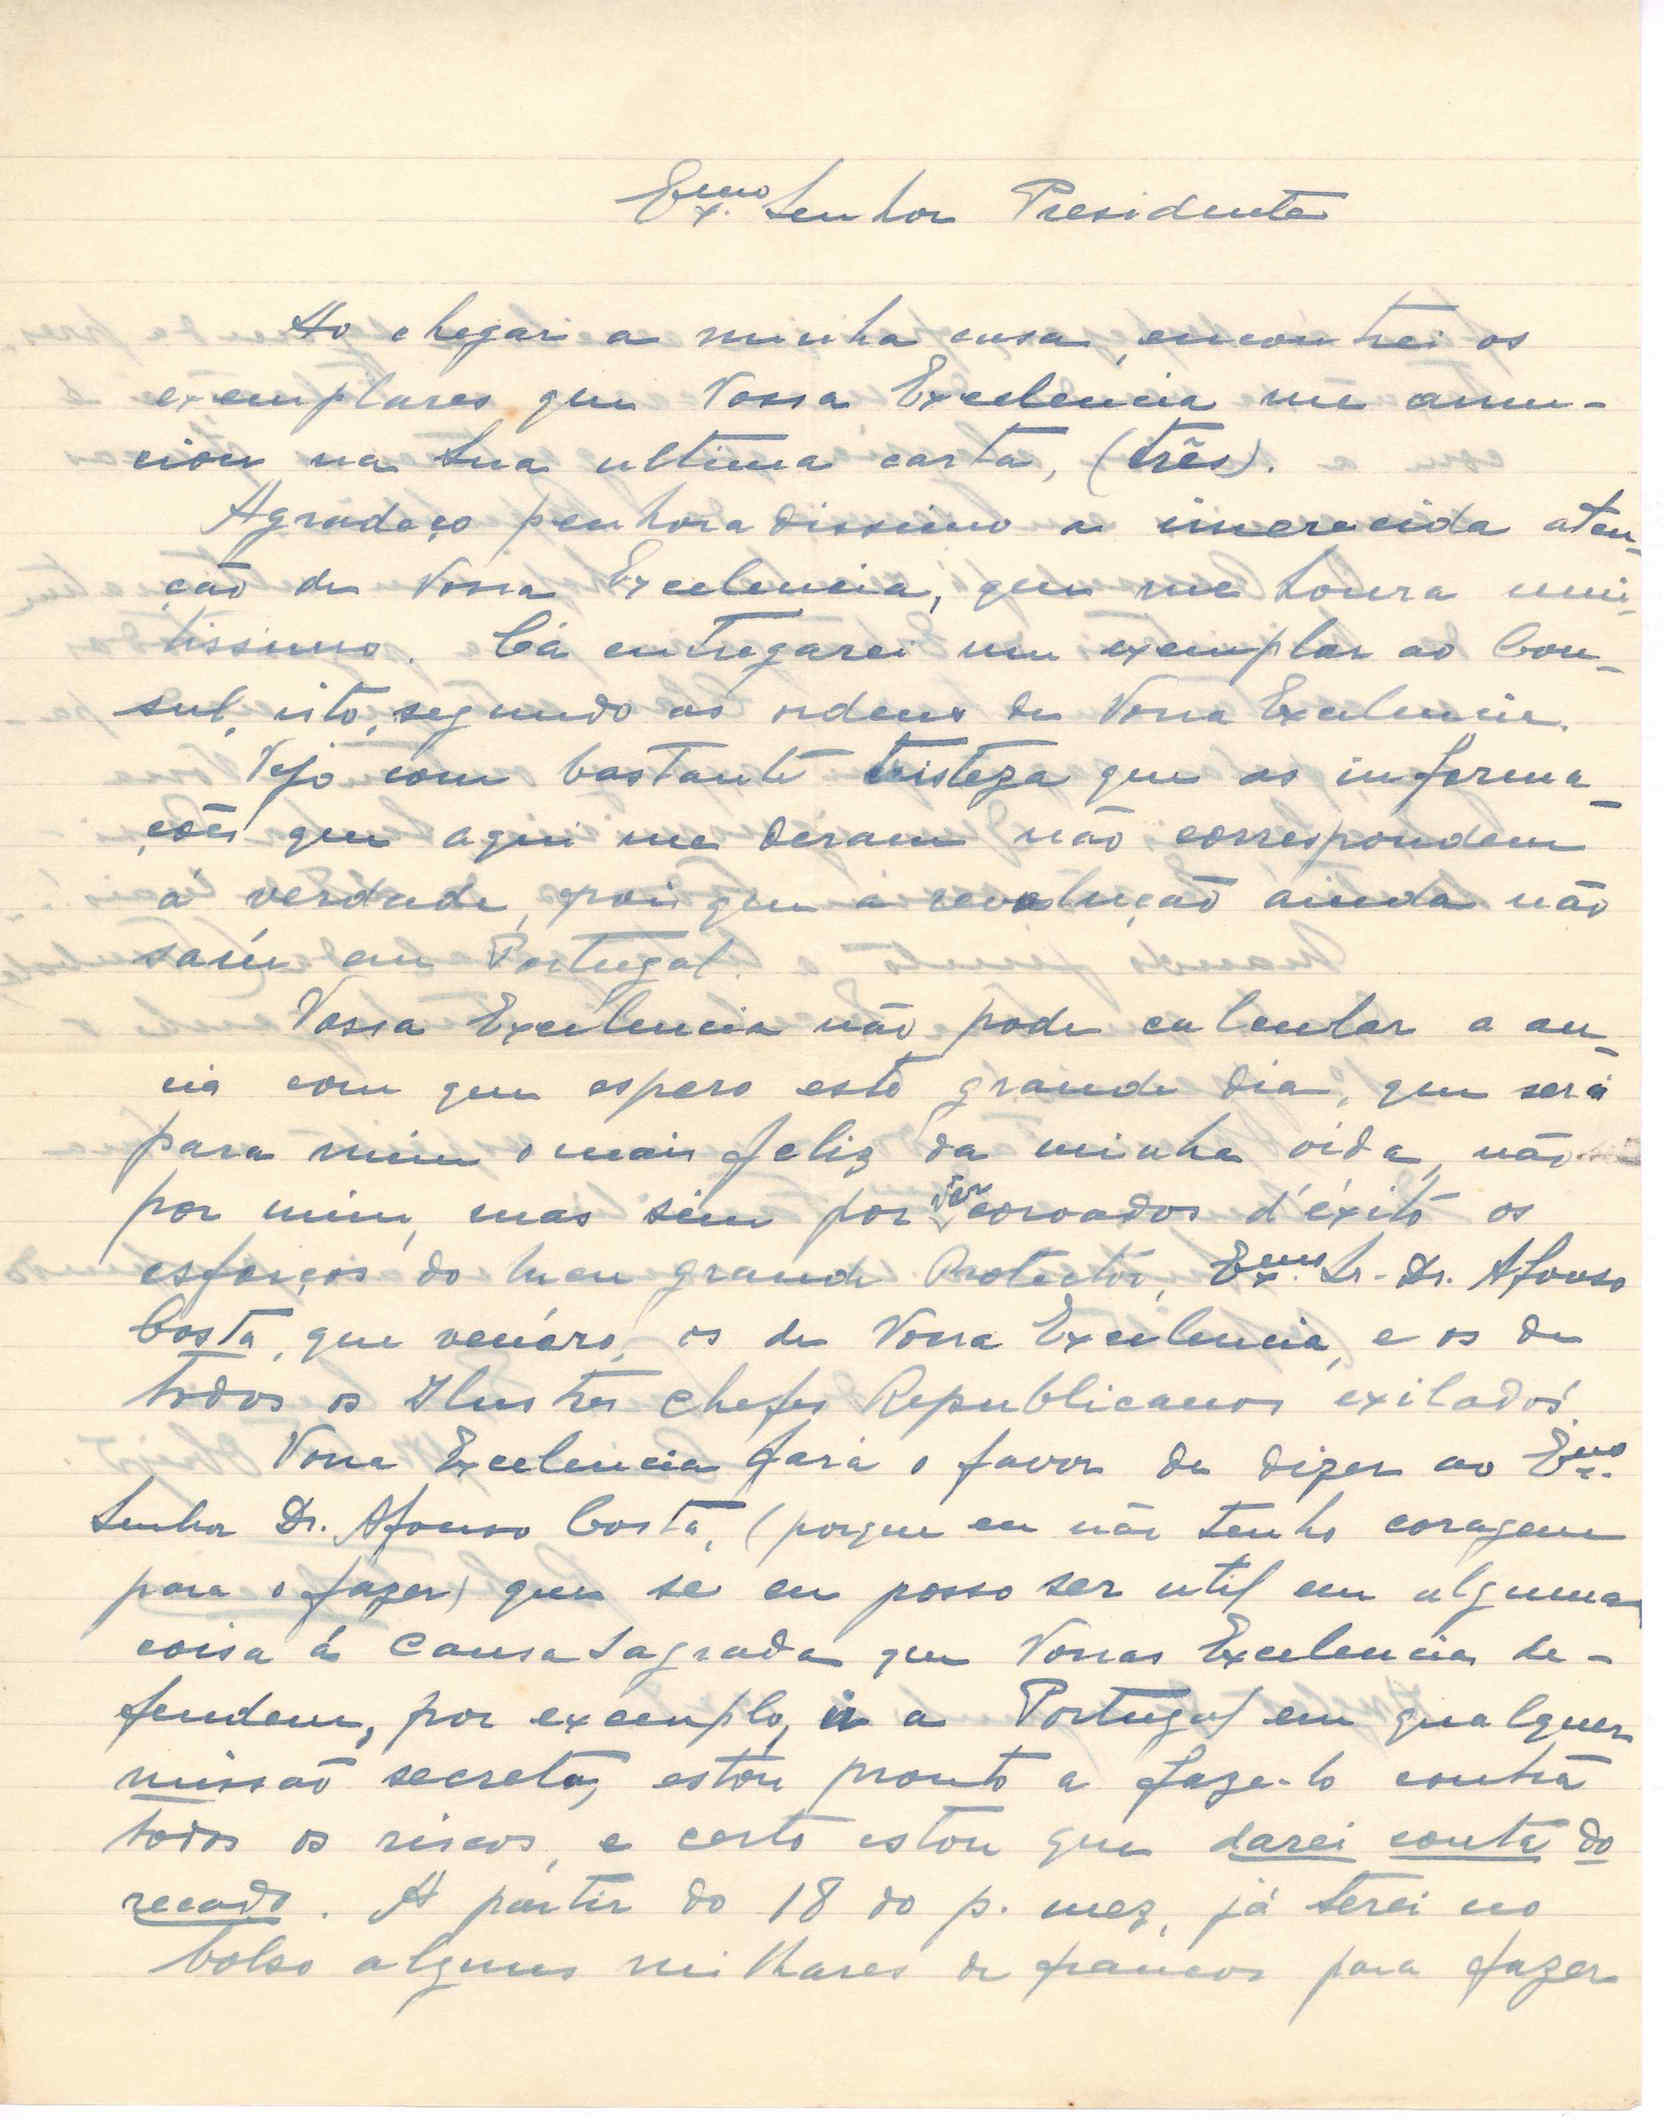 Ex.mo Senhor Presidente
Ao chegar a minha casa, encontrei os
exemplares que Vossa Excelencia me anun-
ciou na Sua ultima carta, (três).
Agradeço penhoradissimo a imerecida aten-
ção de Vossa Excelencia, que me honra mui-
tissimo. Cá entregarei um exemplar ao Con-
sul, isto, segundo as ordens de Vossa Excelencia.
Vejo com bastante tristeza que as informa-
ções que aqui me deram não correspondem
á verdade, pois que a revolução ainda não
saíu em Portugal.
Vossa Excelencia não pode calcular a an-
cia com que espero este grande dia, que será
para mim o mais feliz da minha vida, não
por mim, mas sim por ver coroados d'éxito os
esforços do meu grande Protector, Ex.mo Sr. Dr. Afonso
Costa, que venéro, os de Vossa Excelencia, e os de
todos os Ilustres Chefes Republicanos exilados.
Vossa Excelencia fará o favor de dizer ao Ex.mo
Senhor Dr. Afonso Costa, (porque eu não tenho coragem
para o fazer) que se eu posso ser util em alguma
coisa á Causa Sagrada que Vossas Excelencias de-
fendem, por exemplo, ir a Portugal em qualquer
missão secreta, estou pronto a faze-lo contra
todos os riscos, e certo estou que darei conta do
recado. A partir do 18 do p. mez, já terei no
bolso alguns milhares de francos para fazer